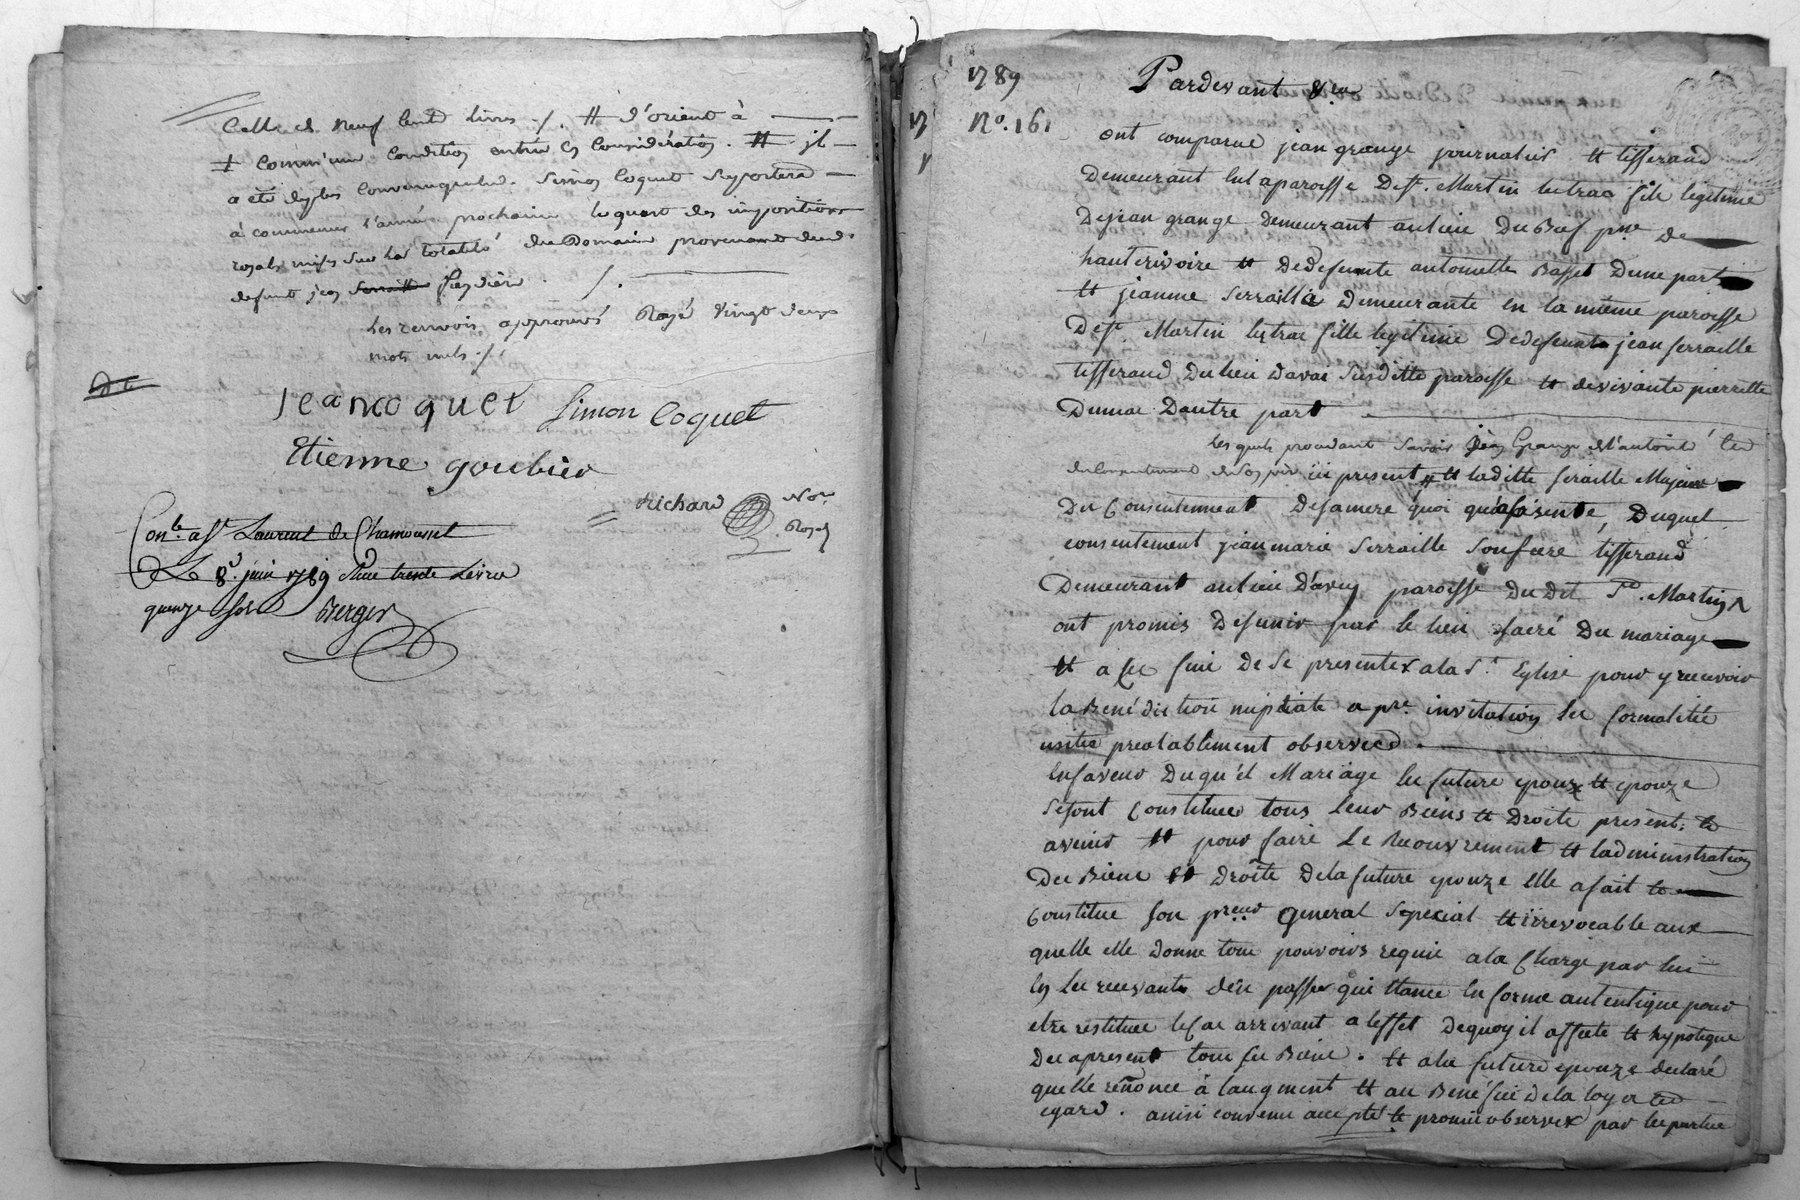 Celle de neuf cent livres ./. # d'orient à
‡ comm'une condition entre en considération. # il
a été deplus convenu que led. Simon Coquet suportera
à commencer l'année prochaine le quart des impositions
royales mises sur la totalité du Domaine provenant dud.
defunt jean
les renvois approuvés Rayé vingt deux
mots nuls ./.
Jean coquet Simon Coquet
Etienne goubier
Richard Nore
Royal
Conlé a St Laurent de Chamousset
Le 8e juin 1789 Reçu trente Livre
quinze sols Berger
1789
Pardevant &ca
No. 161
ont comparus jean grange journalier et tisserand
Demeurant en la paroisse De St. Martin lestrac fils legitime
De jean grange Demeurant au lieu Du Bief psse. de
hauterivoire et De defunte antoinette Basset Dune part
et jeanne Serraille Demeurante en la même paroisse
De St. Martin lestrac fille legitime De defunt jean Serraille
tisserand Du lieu Davai Susditte paroisse et de vivante pierrette
Dumas Dautre part
lesquels procedant Savoir jean Grange de l'autorité et
du Consentement de son père ici present et laditte Seraille Majeure
Du Consentement De sa mere quoi qu'absente, Duquel
consentement jean marie Serraille Son frere tisserand
Demeurant au lieu D'avay paroisse Du dit St. Martin
ont promis De s'unir par le lien sacré Du mariage
et a ces fins de Se presenter a la Ste Eglise pour y recevoir
la Benédiction nuptiale a pre. invitation les formalités
usitées prealablement observées.
En faveur Duquel Mariage les future epoux et epouze
Se sont Constitués tous leur Biens et Droits present; et
avenir et pour faire Le Recouvrement et ladministration
Des Biens et Droits De la future epouze Elle a fait et
Constitue Son preur General Special et irrevocable aux
quelle elle Donne tous pouvoirs requis a la Charge par lui
En Les recevants D'en passer quittance En forme autentique pour
etre restituée le Cas arrivant a leffet De quoy il affecte et hypoteque
Des apresent tous ses Biens. et a la future epouze declaré
quelle renonce à laugment et au Benéfice de la loy a cet
egard. ainsi convenu accepté et promis observer par les parties